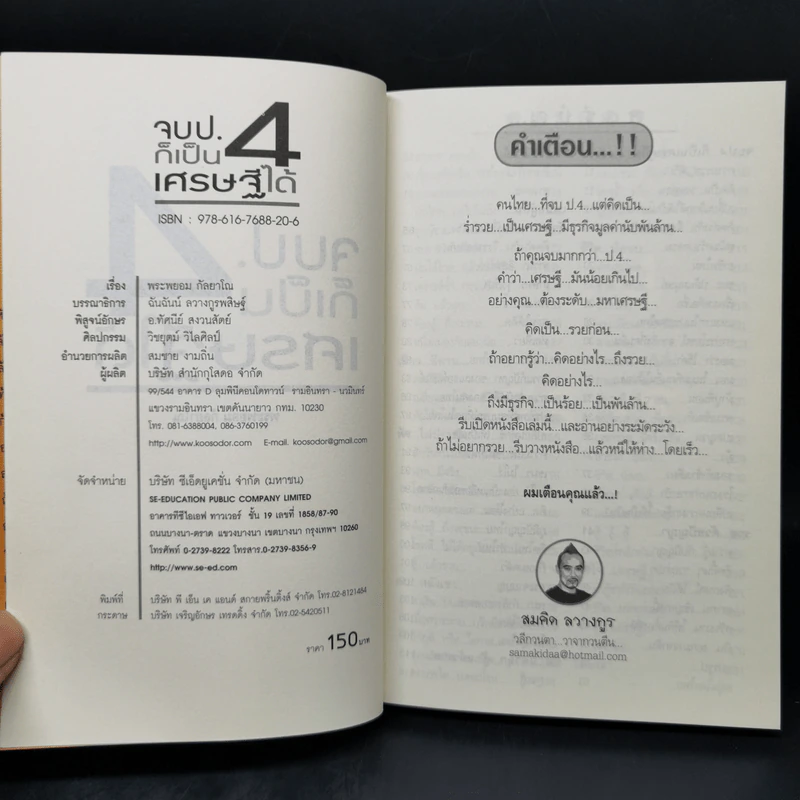 จบ ป. 4
ก็เป็น
เศรษฐีได้
ISBN : 978-616-7688-20-6
เรื่อง พระพยอม กัลยาโณ
บรรณาธิการ ฉันฉันน์ ลวางกูรพสิษฐ์
พิสูจน์อักษร อ.ทัศนีย์ สงวนสัตย์
ศิลปกรรม วิชยุตม์ วิไลศิลป์
อำนวยการผลิต สมชาย งามถิ่น
ผู้ผลิต บริษัท สำนักกุโสดอ จำกัด
99/544 อาคาร D ลุมพินีคอนโดทาวน์ รามอินทรา - นวมินทร์
แขวงรามอินทรา เขตคันนายาว กทม. 10230
โทร. 081-6388004, 086-3760199
http://www.koosodor.com E-mail. koosodor@gmail.com
จัดจำหน่าย บริษัท ซีเอ็ดยูเคชั่น จำกัด (มหาชน)
SE-EDUCATION PUBLIC COMPANY LIMITED
อาคารทีซีไอเอฟ ทาวเวอร์ ชั้น 19 เลขที่ 1858/87-90
ถนนบางนา-ตราด แขวงบางนา เขตบางนา กรุงเทพฯ 10260
โทรศัพท์ 0-2739-8222 โทรสาร.0-2739-8356-9
http://www.se-ed.com
พิมพ์ที่ บริษัท พี เอ็น เค แอนด์ สกายพริ้นติ้งส์ จำกัด โทร.02-8121484
กระดาษ บริษัท เจริญอักษร เทรดดิ้ง จำกัด โทร.02-5420511
ราคา 150 บาท
คำเตือน...!!
คนไทย...ที่จบ ป.4...แต่คิดเป็น...
ร่ำรวย...เป็นเศรษฐี...มีธุรกิจมูลค่านับพันล้าน...
ถ้าคุณจบมากกว่า...ป.4...
คำว่า...เศรษฐี...มันน้อยเกินไป...
อย่างคุณ...ต้องระดับ...มหาเศรษฐี...
คิดเป็น...รวยก่อน...
ถ้าอยากรู้ว่า...คิดอย่างไร...ถึงรวย...
คิดอย่างไร...
ถึงมีธุรกิจ...เป็นร้อย...เป็นพันล้าน...
รีบเปิดหนังสือเล่มนี้...และอ่านอย่างระมัดระวัง...
ถ้าไม่อยากรวย...รีบวางหนังสือ...แล้วหนีให้ห่าง...โดยเร็ว...
ผมเตือนคุณแล้ว...!
สมคิด ลวางกูร
วลีกวนตา...วาจากวนตีน...
samakidaa@hotmail.com